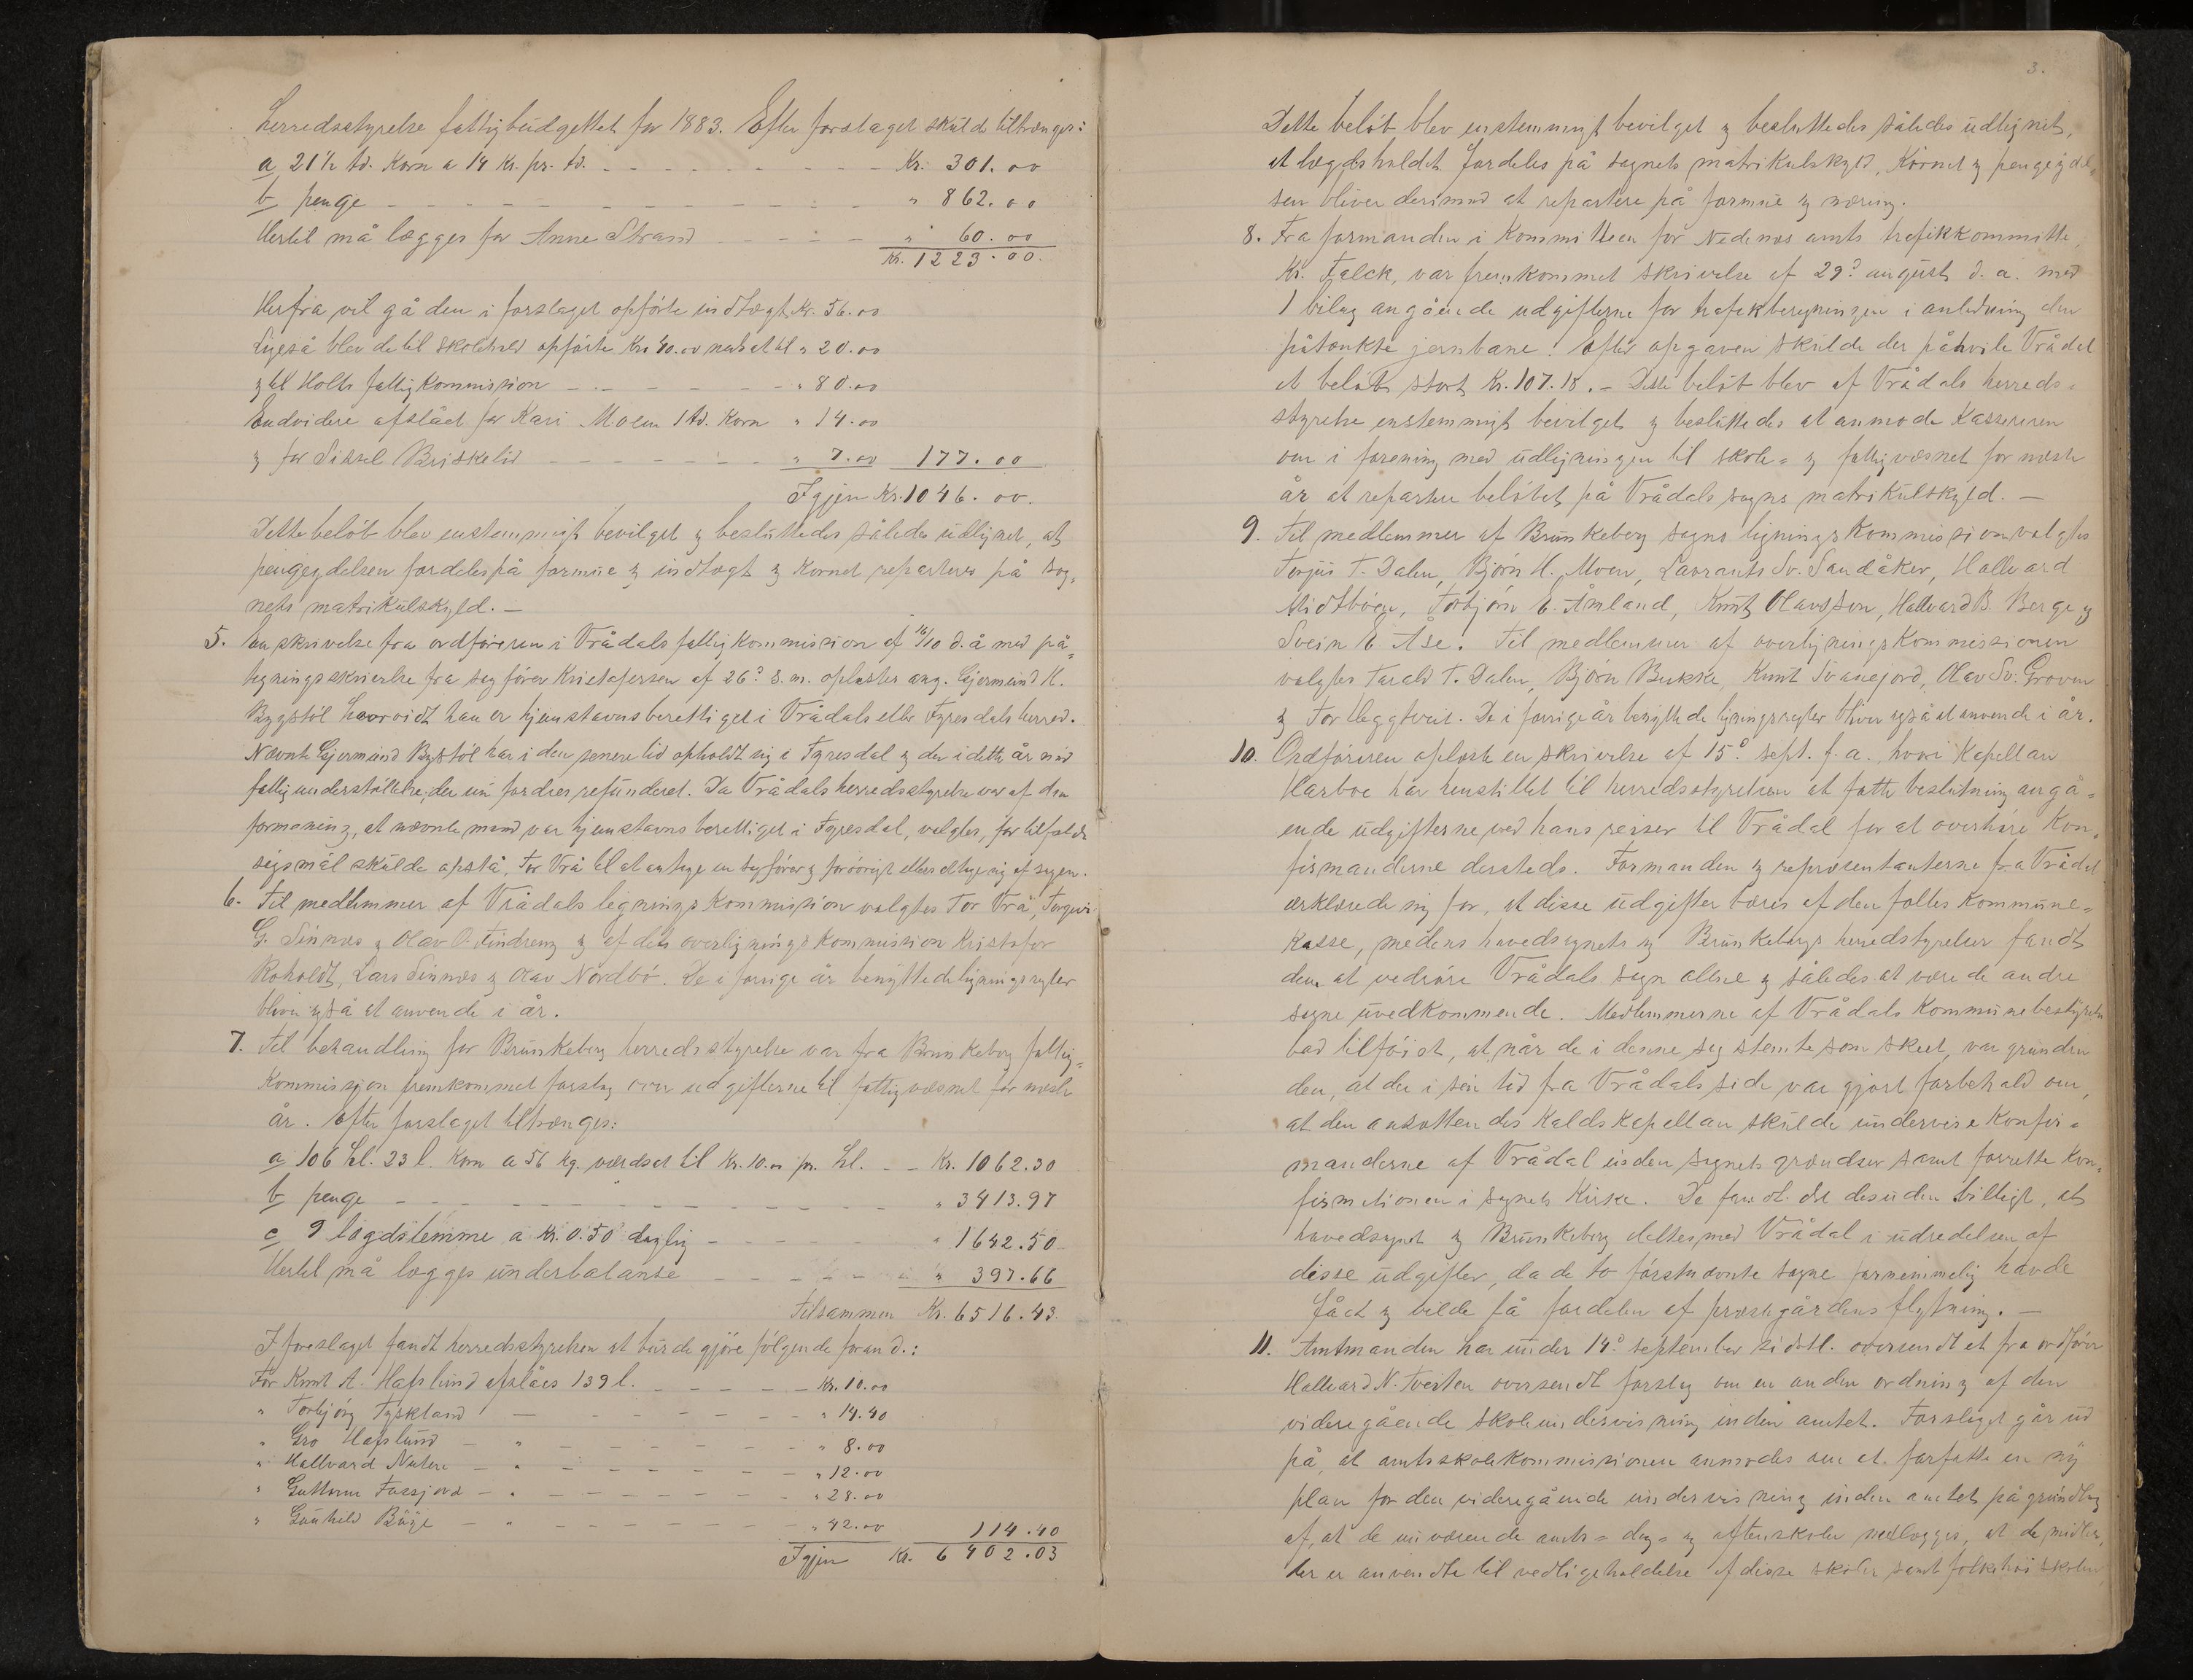 Herredsstyrelse fattigbudgettet for 1883. Efter forslaget skulde tiltrænges:
a 21½ td. Korn a 14 Kr. pr. td. - - - - - - - - Kr. 301.00
b penge - - - - - - - - - - - - " 862.00
Hertil må lægges for Anne Strand - - - - " 60.00
Kr. 1223.00.
Herfra vil gå den i forslaget opförte indtægt Kr. 56.00
Ligeså blev de til skolehold opförte Kr. 40.00 nedsat til " 20.00
og til Holts fattigkommission - - - - - - " 80.00
Endvidere afslået for Kari Moen 1 td. Korn " 14.00
og for Sissel Briskelid - - - - - - " 7.00 177.00
Igjen Kr. 1046.00.
Dette belöb blev enstemmigt bevilget og besluttedes således udlignet, at
pengeydelsen fordeles på formue og indtægt og Kornet reparteres på sog=
nets matrikulskyld. —
5. En skrivelse fra ordföreren i Vrådals fattigkommission af 16/10 d. å med på=
tegningsskrivelse fra sagförer Kristofersen af 26? s. m. oplæstes ang. Gjermund K.
Bygstöl hvorvidt han er hjemstavnsberettiget i Vrådals eller Fyresdals herred.
Nævnte Gjermund Bygstöl har i den senere tid opholdt sig i Fyresdal og der i dette år nød
fattigunderstöttelse, der nu fordres refunderet. Da Vrådals herredsstyrelse var af den
formening, at nævnte mand var hjemstavnsberettiget i Fyresdal, valgtes, for tilfælde
sögsmål skulde opstå, Tor Vrå til at antage en sagförer og forövrigt ellers at tage sig af sagen.
6. Til medlemmer af Vrådals ligningskommission valgtes Tor Vrå, Torgeir
G. Sinnes og Olav O. Findreng og af dets overligningskommission Kristofer
Roholdt, Lars Sinnes og Olav Nordbö. De i forrige år benyttede ligningsregler
bliver også at anvende i år.
7. Til behandling for Brunkeberg herredsstyrelse var fra Brunkeberg fattig=
kommission fremkommet forslag over udgifterne til fattigvæsenet for næste
år. Efter forslaget tiltrænges:
a 106 hl. 23 l. Korn a 56 kg. værdsat til Kr. 10.00 pr. hl. - - Kr. 1062.30
b penge - - - - - - - - - - - - " 3413.97
c 9 lægdslemme a Kr. 0.50 daglig - - - - - " 1642.50
Hertil må lægges underbalanse - - - - - " 397.66
Tilsammen Kr. 6516.43.
I foreslaget fandt herredsstyrelsen at burde gjöre fölgende forand.:
For Knut A. Hafslund afslåes 139 l. - - - - - Kr. 10.00
" Torbjörg Tyskland — - - - - - " 14.40
" Gro Hafslund — " - - - - - " 8.00
" Hallvard Nutene — " - - - - - " 12.00
" Guttorm Fossjord — " - - - - - " 28.00
" Gunhild Böge — " - - - - - " 42.00 114.40
Igjen Kr. 6402.03
3.
Dette belöb blev enstemmigt bevilget og besluttedes således udlignet,
at lægdsholdet fordeles på sognets matrikulskyld, Kornet og pengeydel=
sen bliver derimod at repartere på formue og næring.
8. Fra formanden i Kommitteen for Nedenæs amts trafikkommitte,
Kr. Falck, var fremkommet skrivelse af 29? august d. a. med
1 bilag angående udgifterne for trafikberegningen i anledning den
påtænkte jernbane! Efter opgaven skulde der påhvile Vrådal
et belöb stort Kr. 107.18. — Dette belöb blev af Vrådals herreds=
styrelse enstemmigt bevilget og besluttedes at anmode Kassereren
om i forening med udligningen til skole= og fattigvæsnet for næste
år at repartere belöbet på Vrådals sogns matrikulskyld. —
9. Til medlemmer af Brunkeberg sogns ligningskommission valgtes
Torjus T. Dalen, Björn H. Moen, Lavrants Sv. Sandåker, Hallvard
Midtböen, Torbjörn E. Åmland, Knut Olavsson, Hallvard B. Berge og
Svein E. Åse. Til medlemmer af overligningskommissionen
valgtes Tarald T. Dalen, Björn Bukka, Knut Svanejord, Olav Sv. Groven
og Tor Heggtveit. De i forrige år benyttede ligningsregler bliver også at anvende i år.
10. Ordföreren oplæste en skrivelse af 15? sept. f. a., hvori Kapellan
Harboe har henstillet til herredsstyrelsen at fatte beslutning angå=
ende udgifterne ved hans reiser til Vrådal for at overhöre Kon=
firmanderne dersteds. Formanden og repræsentanterne fra Vrådal
erklærede sig for, at disse udgifter bæres af den fælles Kommune=
kasse, medens hovedsognets og Brunkebergs herredstyrelser fandt
den at vedröre Vrådals sogn allene og således at være de andre
sogne uvedkommende. Medlemmerne af Vrådals Kommunebestyrelse
bad tilföiet, at når de i denne sag stemte som skeet, var grunden
den, at der i sin tid fra Vrådals side var gjort forbehold om,
at den ansættendes Kaldskapellan skulde undervise Konfir=
manderne af Vrådal inden sognets grændser samt forrette Kon=
firmationen i sognets Kirke. De fandt det desuden billigt, at
hovedsognet og Brunkeberg deltes med Vrådal i udredelsen af
disse udgifter, da de to förstnævnte sogne formenimelig havde
fået og vilde få fordelen af præstegårdens flytning. —
11. Amtmanden har under 14? september sidstl. oversendt et fra ordförer
Hallvard N. Tveiten oversendt forslag om en anden ordning af den
videregående skoleundervisning inden amtet. Forslaget går ud
på, at amtsskolekommissionen anmodes om at forfatte en ny
plan for den videregående undervisning inden amtet på grundlag
af, at de nuværende amts= dag= og aftenskoler nedlægges, at de midler,
der er anvendte til vedligeholdelse af disse skoler samt folkehöiskolen,